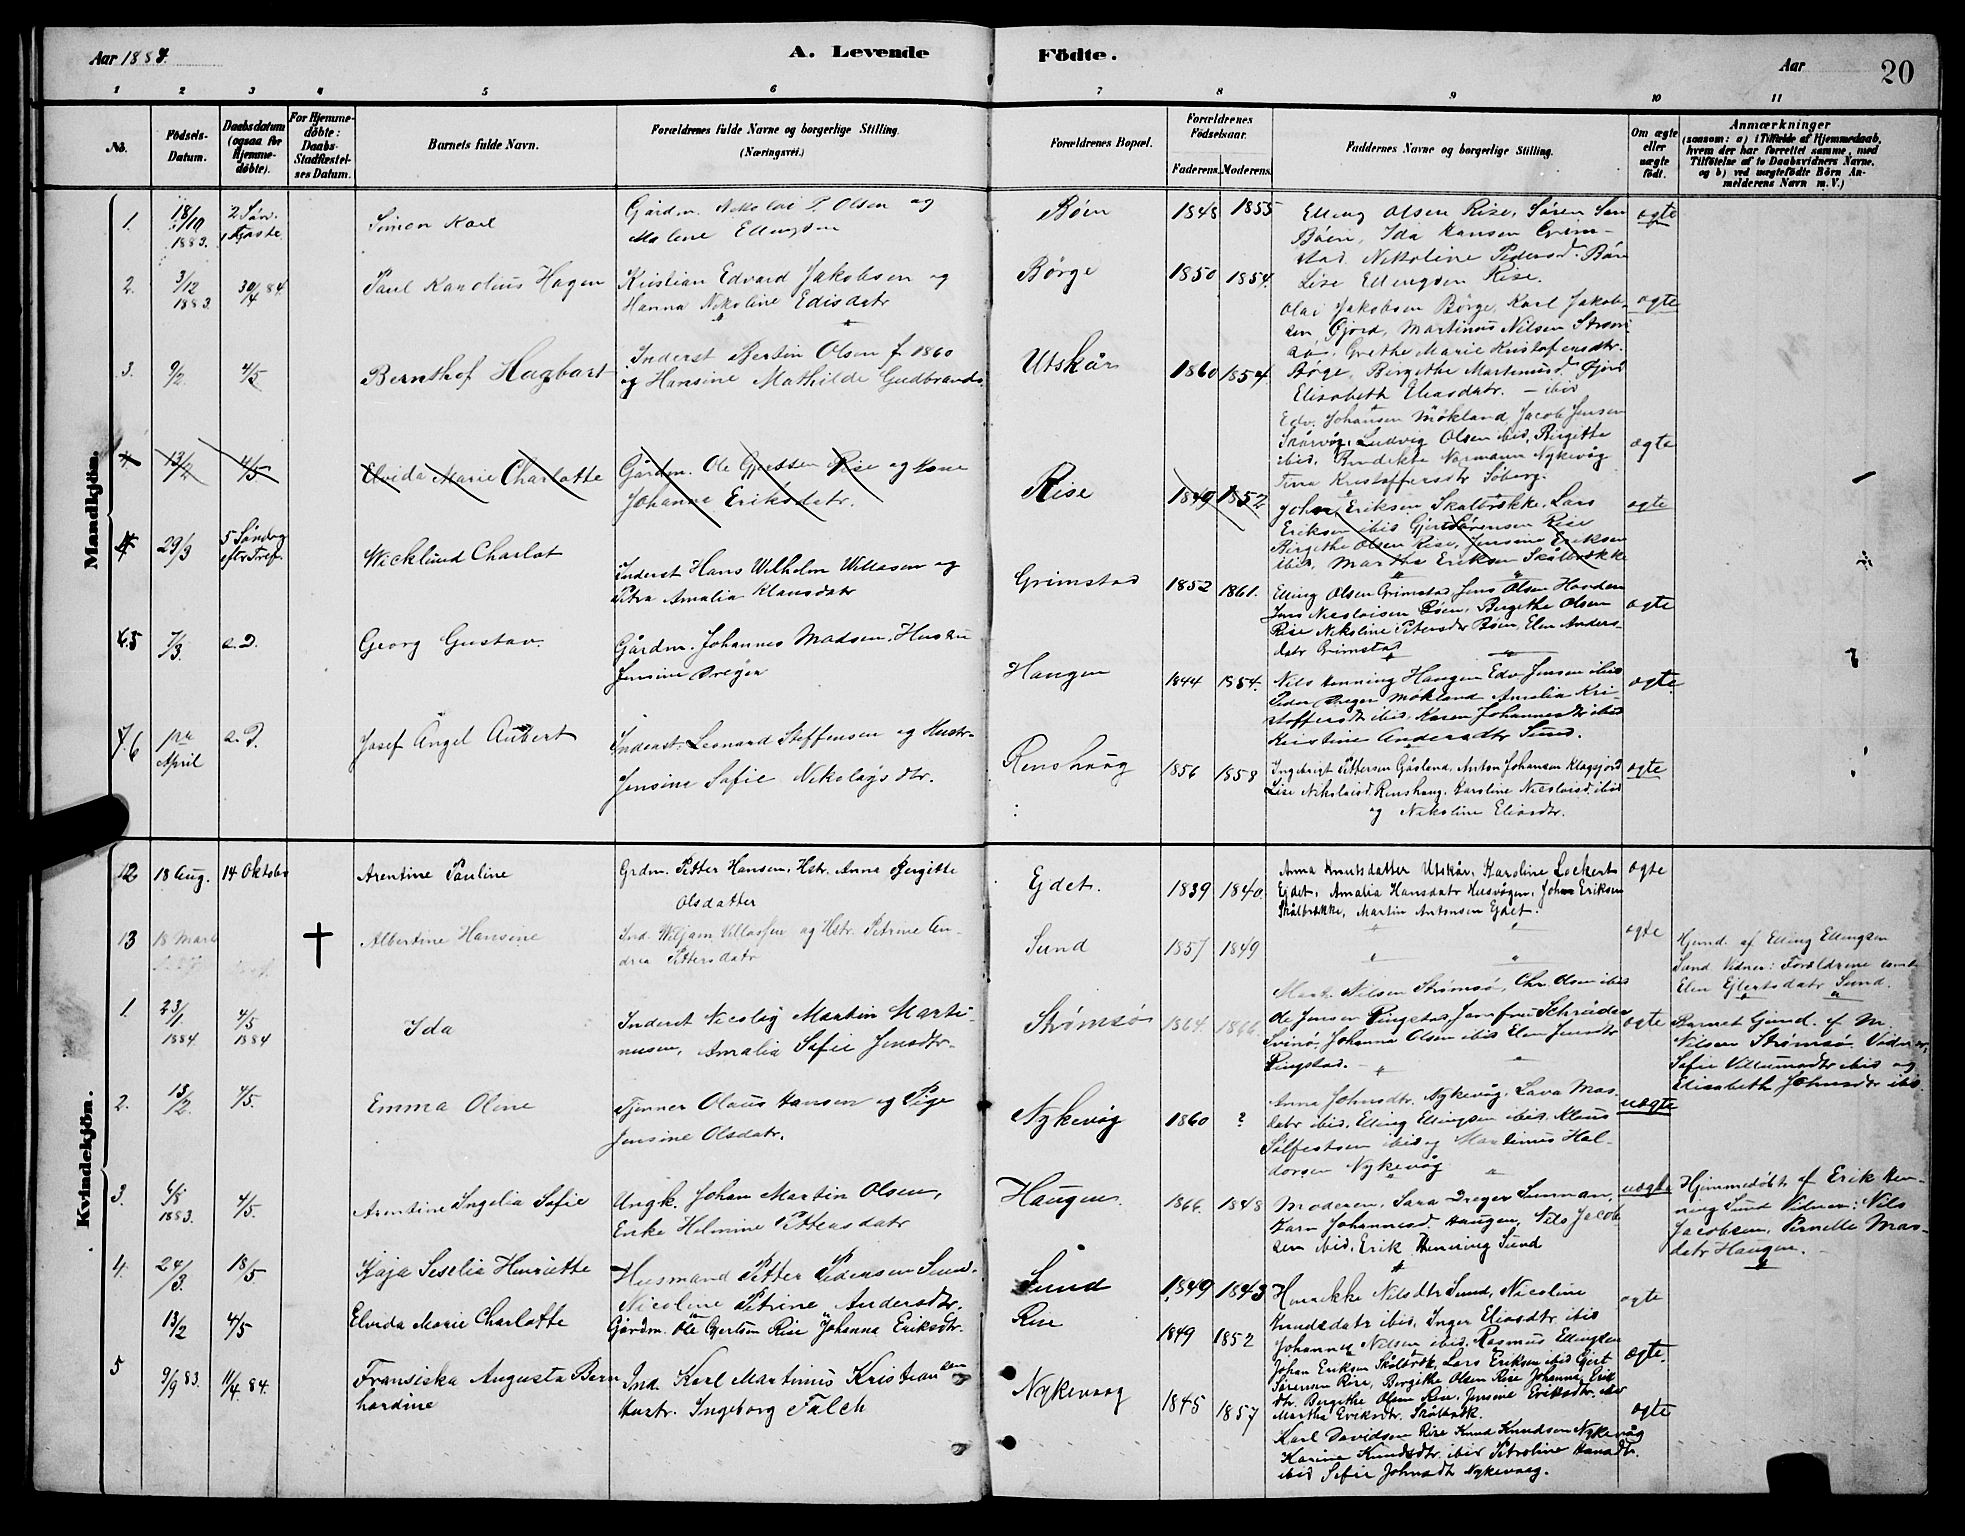 Aar 1884.
A. Levende
Fødte.
Aar
20
1 2 3 4 5 6 7 8 9 10 11
No.
Födsels-Datum.
Daabsdatum (ogsaa for Hjemme-döbte).
For Hjemme-döbte: Daabs-Stadfæstel-ses Datum.
Barnets fulde Navn.
Forældrenes fulde Navne og borgerlige Stilling.
(Næringsvei.)
Forældrenes Bopæl.
Forældrenes Födselsaar.
Faderens. Moderens.
Faddernes Navne og borgerlige Stilling.
Om ægte eller uægte födt.
Anmærkninger
(saasom: a) i Tilfælde af Hjemmedaab, hvem der har forrettet samme, med Tilföielse af to Daabsvidners Navne, og b) ved uægtefödte Börn Anmelderens Navn m. V.)
Mandkjön.
1. 18/10 1883. 2 Sön. i Faste Simon Karl
Gårdm. Nikolai P. Olsen og
Malene Ellingsen
Böen 1848 1855
Elling Olsen Rise, Sören
Böen, Ida Hansen Grim-
stad Nikoline Pedersd. Böen
Lise Ellingsen Rise.
ægte
2. 3/12 1883. 30/4 84. Paul Karolius Hagen
Kristian Edvard Jakobsen og
Hanna Nikoline Edisdatr
Börge 1850 1854.
Olai Jakobsen Börge, Karl Jakob-
sen Gjörd, Martinus Nilsen
Grethe Marie Kristofersdtr.
Börge, Bergithe Martinusd
Elisabeth Eliasdatr. - ibid
ægte
3. 9/2. 4/5 Bernthof Hagbart
Inderst Bertin Olsen f 1860
og Hansine Mathilde Gudbrands.
Utskår 1860 1854
Edv. Johansen Mökland, Jacob Jensen
Skårvåg, Ludvig Olsen ibid, Birgitte
ibid, Bendikte Normann Nykevåg
Kristoffersdtr Söberg.
ægte
4. 13/2 4/5 Elvida Marie Charlotte
Gårdm. Ole Gjertsen Rise og kone
Johanna Eriksdatr.
Rise 1849 1852
Johan Eriksen Skålbrække, Lars
Eriksen ibid Gjert Sörensen Rise
Birgithe Olsen Rise, Jensine Eriksen
ibid, Martha Eriksen Skålbrække
ægte
4 29/3 5 Söndag efter Tref. Wicklund Charlot
Inderst Hans Wilhelm Willasen og
Petra Amalia Klausdatr
Grimstad 1852 1861.
Elling Olsen Grimstad Jens Olsen Hovden
Jens Nicolaisen Böen, Bergithe Olsen
Rise Nikoline Petersdtr Böen, Elen Anders-
datr Grimstad
ægte
5 7/3. a.d. Georg Gustav.
Gårdm. Johannes Madsen, Hustru
Jensine Dreyer
Haugen 1844 1854.
Nils Henning Haugen Edv Jensen ibid
Peder Dreyer Mökland Amalia Kri-
stoffersdtr ibid, Karen Johannesdtr ibid
Kristine Andersdtr Sund.
ægte
6 1ste April a.d. Josef Angel Aubert
Inderst. Leonard Steffensen og Hustr.
Jensine Sofie Nikolaysdtr.
Renshaug 1856 1858
Ingebrigt Pettersen Gåsland, Anton Johansen Klagsfjord
Lise Nikolaisd. Renshaug, Karoline Nicolaisd. ibid
og Nikoline Eliasdtr.
ægte
Kvindekjön.
12 18 Aug. 14 Oktober Arentine Pauline
Grdm. Petter Hansen, Hstr. Anna Bergitte
Olsdatter
Ejdet. 1839 1840.
Anna Knutsdatter Utskår, Karoline Lockert
Ejdet, Amalia Hansdatr Husvågen, Johan Eriksen
Skålbrække, Martin Antonsen Ejdet.
ægte
13 18 Marts Albertine Hansine
Ind. Wiljam Villassen og Hstr. Petrine An-
drea Pettersdatr
Sund 1857 1849
ægte
Hjmd. af Elling Ellingsen
Sund. Vidner: Forældrene samt
Elen Ejlertsdatr Sund.
1. 23/1 1884. 4/5 1884 Ida
Inderst Nicolay Martin Marti-
nusen, Amalia Sofie Jensdtr.
Strömsö 1864. 1866.
Mart. Nilsen Strömsö, Chr Olsen ibid
Ole Jensen Ringstad Jomfru Schröder
Svinö, Johanna Olsen ibid Elen Jensdtr
Ringstad.
ægte
Barnet Hjmd. af M.
Nilsen Strömsö. Vidner,
Sofie Villumsdtr ibid og
Elisabeth Johnsdtr ibid.
2. 13/2 4/5. Emma Oline
Tjener Olaus Hansen og Pige
Jensine Olsdatr.
Nykevåg 1860 ?
Anna Johnsdtr. Nykevåg, Lava Mas-
datr ibid, Elling Ellingsen ibid, Klaus
Sölfestsen ibid og Martinus Hal-
dorsen Nykevåg
uægte
3. 6/8 1883. 4/5. Arentine Ingelia Sofie
Ungk. Johan Martin Olsen,
Enke Helmine Pettersdatr
Haugen. 1866. 1848
Moderen, Sara Dreyer Sunnan,
Karn Johannesd. Haugen, Nils Jacob
sen ibid, Erik Henning Sund
uægte
Hjemmedöbt af Erik Hen-
ning Sund Vidner: Nils
Jacobsen, Pernille Mas-
datr Haugen.
4. 24/3. 18/5 Kaja Seselia Henriette
Husmand Petter Pedersen Sund.
Nicoline Petrine Andersdtr.
Sund 1849 1843
Henrikke Nilsdtr Sund, Nicoline
Knudsdatr ibid, Inger Eliasdtr ibid
Johannes Nilsen ibid. Rasmus Ellingsen
ægte
13/2 4/5 Elvida Marie Charlotte
Gårdm. Ole Gjertsen Rise Johanna Eriksdtr.
Rise 1849 1852
Johan Eriksen Skålbrek, Lars Eriksen ibid Gjert
Sörensen Rise, Bergithe Olsen Rise Johanna Erik
dtr. Bergithe Olsen Rise, Jensine Eriksdtr. ibid
Martha Eriksdtr. Skålbrek.
ægte.
5 9/9 83. 11/4 84. Fransiska Augusta Bern
hardine
Ind. Karl Martinus Kristian sen
Hustr. Ingeborg Falch
Nykevaag 1845 1857
Karl Davidsen Rise Knud Knudsen Nykevåg
Karine Knudsdtr. ibid Petroline Hansdtr.
ibid Sofie Johnsdtr Nykevaag.
ægte